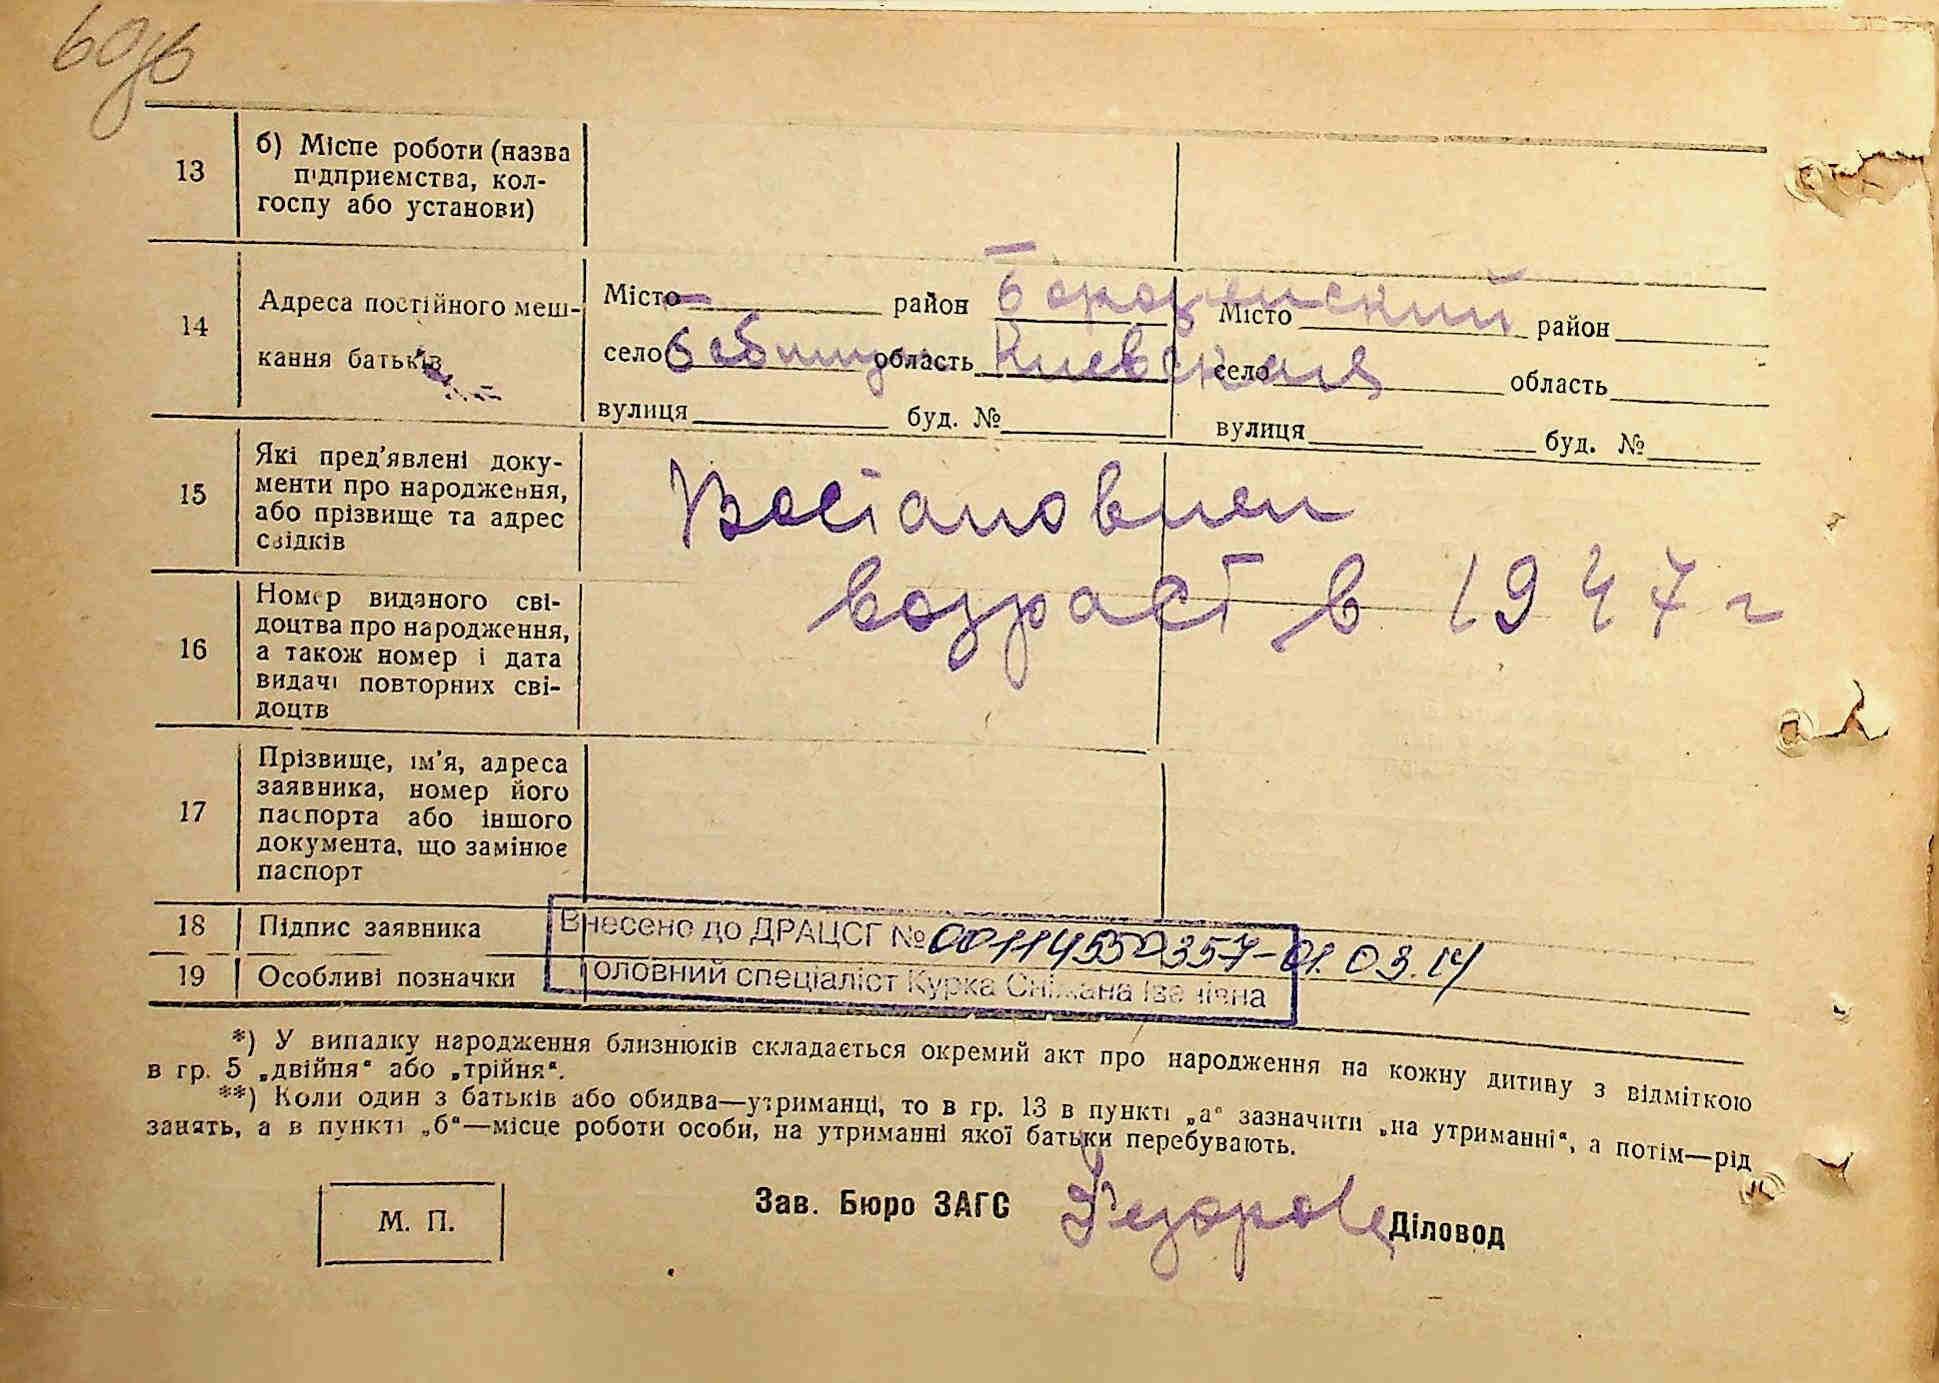 60зв
13
б) Міспе роботи (назва
підприємства, кол-
госпу або установи)
14
Адреса постійного меш-
кання батьків
Місто район Бородянский
село Бабинцы область Киевская
вулиця буд. №
Місто район
село область
вулиця буд. №
15
Які пред'явлені доку-
менти про народження,
або прізвище та адрес
свідків
Востановлен
возраст в 1947 г
16
Номер виданого сві-
доцтва про народження,
а також номер і дата
видачі повторних сві-
доцтв
17
Прізвище, ім'я, адреса
заявника, номер його
паспорта або іншого
документа, що замінює
паспорт
18 Підпис заявника
19 Особливі позначки
Внесено до ДРАЦСГ № 00114550357-01.03.14
Головний спеціаліст Курка Сніжана Іванівна
*) У випадку народження близнюків складається окремий акт про народження на кожну дитину з відміткою
в гр. 5 „двійня“ або „трійня“.
**) Коли один з батьків або обидва—утриманці, то в гр. 13 в пункті „а“ зазначити „на утриманні“, а потім—рід
занять, а в пункті „б“—місце роботи особи, на утриманні якої батьки перебувають.
М. П.
Зав. Бюро ЗАГС
Діловод